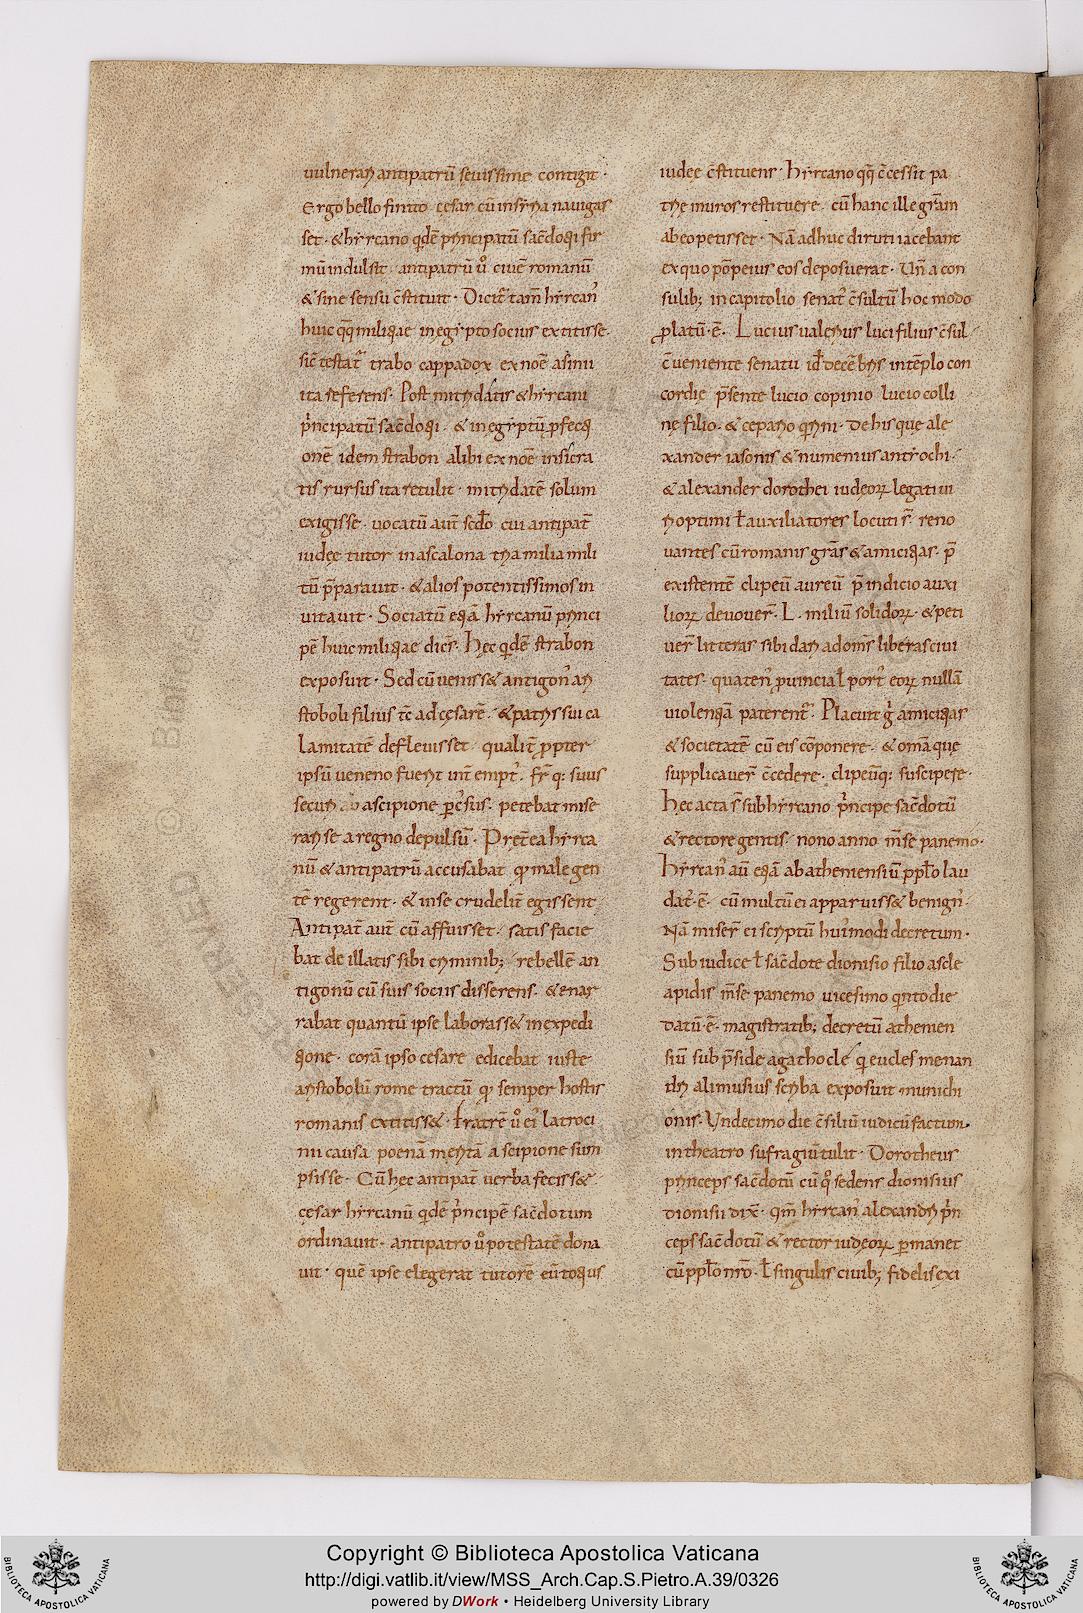 uulnerari antipatrū seuissime contigit ·
Ergo bello finito cesar cū in syria nauigas
set · & hyrcano qdē principatū sac̄dotii fir
mū indulsit · antipatrū ů ciuē romanū
& sine sensu c̄stituit · Dicit̄ tam̄ hyrcan᾽
huic qq̄ militiae in egypto socius extitisse ·
sic̄ testat᾽ trabo cappadox ex noē asinii
ita referens · Post mitridatis & hyrcani
p̓ncipatū sac̄dotii · & in egyptū pfecti
onē idem strabon alibi ex noē insicra
tis rursus ita retulit · mitridatē solum
exigisse · uocatū aut̄ sc̄do cui antipat̄
iudęę tutor in ascalona tria milia mili
tū p̄parauit · & alios potentissimos in
uitauit · Sociatū etiā hyrcanū princi
pē huic militiae dic̄s · Hęc qdē strabon
exposuit · Sed cū uenisset antigon᾽ ari
stoboli filius tc̄ ad cesarē · & patris sui ca
lamitatē defleuisset · qualit̄ ppter
ipsū ueneno fuerit int̄emptꝰ · fr̄ q: suus
securi ascipione pc̄sus · petebat mise
rari se a regno depulsū · Pret̄ea hyrca
nū & antipatrū accusabat qđ male gen
tē regerent · & in se crudelit̄ egissent
Antipat̄ aut̄ cū affuisset · satis facie
bat de illatis sibi criminib; rebellē an
tigonū cū suis sociis disserens · & enar
rabat quantū ipse laborasset in expedi
tione · corā ipso cesare edicebat iuste
aristobolū rome tractū qđ semper hostis
romanis extitisset · fratrē ů ei᾽ latroci
nii causa poenā meritā a scipione sum
psisse · Cū hec antipat̄ uerba fecisset
cęsar hyrcanū qdē p̓ncipē sac̄dotum
ordinauit · antipatro ů potestatē dona
uit · quē ipse elegerat tutorē eū totius
iudęę c̄stituens · hyrcano qq̄ c̄cessit pa
trie muros restituere · cū hanc ille gr̄am
ab eo petisset · Nā adhuc diruti iacebant
ex quo pōpeius eos deposuerat · Un̄ a con
sulib; in capitolio senatꝰ c̄sultū hoc modo
platū · ē · Lucius ualerius luci filius c̄sul
c̄ueniente senatu idƀ decēbris intēplo con
cordię p̄sente lucio copinio lucio colli
nę filio · & cepario qrini · De his que ale
xander iasonis & numenius antiochi ·
& alexander dorothei iudęoꝝ legati ui
ri optimi ł auxiliatores locuti s̄ · reno
uantes cū romanis grās & amicitias · p̄
existentē clipeū aureū p̄ indicio auxi
lioꝝ deuouer̄ · L · miliū solidoꝝ · & peti
uer̄ litteras sibi dari ad om̄s liberas ciui
tates · quaten᾽ puincial portꝰ eoꝝ nullā
uiolentiā paterent᾽ · Placuit g̓ amicitias
& societatē cū eis cōponere · & om̄ia que
supplicauer̄ c̄cedere · clipeūq: suscipere ·
Hęc acta s̄ sub hyrcano p̓ncipe sac̄dotū
& rectore gentis · nono anno m̄se panemo ·
Hyrcan᾽ aū etiā ab atheniensiū pplo lau
datꝰ · ē · cū multū ei apparuisset benign᾽ ·
Nā miser̄ ei scriptū hui᾽modi decretum ·
Sub iudice ł sac̄dote dionisio filio ascle
apidis m̄se panemo uicesimo qnto die
datū · ē · magistratib; decretū athenien
siū sub p̄side agathoclé qi eucles menan
dri alimusius scriba exposuit munichi
onis · Undecimo die c̄siliū iudicū factum ·
in theatro sufragiū tulit · Dorotheus
princeps sac̄dotū cū q᾽ sedens dionisius
dionisii dix̄ · qm̄ hyrcan᾽ alexandri p̓n
ceps sac̄dotū & rector iudęoꝝ pmanet
cū pplo nr̄o · ł singulis ciuib; fidelis exi
Copyright © Biblioteca Apostolica Vaticana
http://digi.vatlib.it/view/MSS_Arch.Cap.S.Pietro.A.39/0326
powered by DWork • Heidelberg University Library
BIBLIOTECA APOSTOLICA VATICANA
BIBLIOTECA APOSTOLICA VATICANA